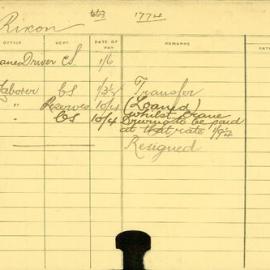 1774
Rixon
OFFICE DEPT. DATE OF PAY REMARKS DATE
Crane Driver CS 1/6
Laborer CS 1/3½ Transfer
" Reserves 10/4 (Loaned)
" CS 10/4 whilst Crane
Driving to be paid
at that rate
Resigned